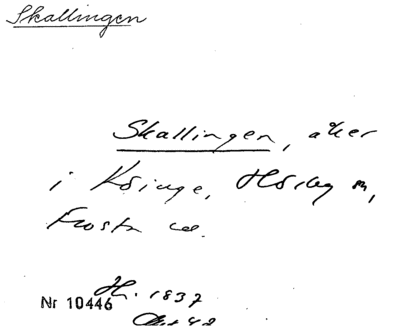 Skallingen
Skallingen, åker
i Köinge, Hörby sn,
Frosta
Nr 10446
H. 1837